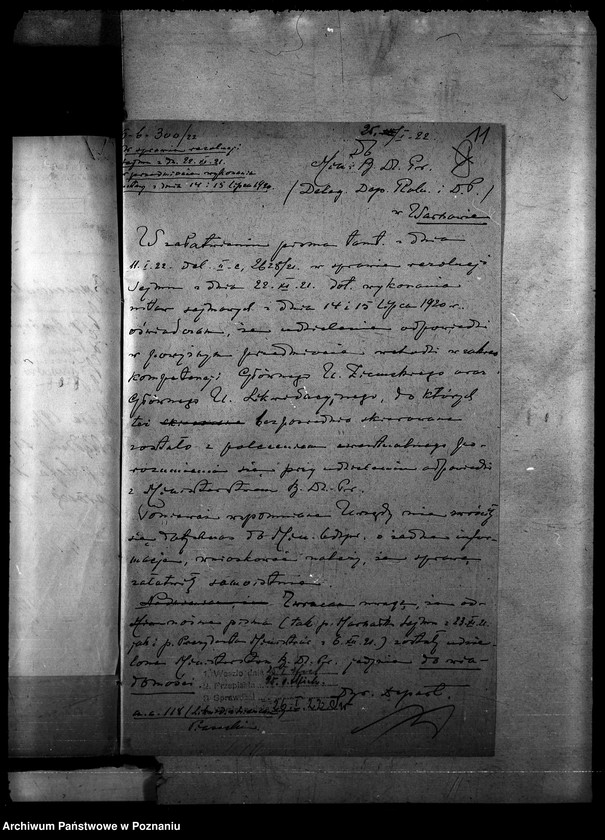 6-300/22
25. I. 22
11
W sprawie rezolucji
Sejmu z d. 22.XI.21.
w przedmiocie wykonania
ustawy z dnia 14 i 15 lipca 1920.
Do
Min. B. Dz. Pr.
(Deleg. Dep. Roln. i D. P.)
w Warszawie
W załatwieniu pisma tamt. z dnia
11.I.22. II-2, 2628/21. w sprawie rezolucji
Sejmu z dnia 22.XI.21. dot. wykonania
ustaw sejmowych z dnia 14 i 15 lipca 1920 r.
oświadczam, że udzielenie odpowiedzi
w powyższym przedmiocie wchodzi w zakres
kompetencji Głównego U. Ziemskiego oraz
Głównego U. Likwidacyjnego, do których
też bezpośrednio skierowane
zostało z poleceniem ewentualnego po-
rozumienia się przy udzieleniu odpowiedzi
z Ministerstwem B. Dz. Pr.
Ponieważ wspomniane Urzędy nie zwróciły
się dotychczas do Min. o żadne infor-
macje, wnioskować należy, że sprawę
załatwiły samoistnie.
Zwracam uwagę, że od-
nośne pisma (tak p. Marszałka Sejmu z 23.XI.21.
jak i p. Prezydenta Ministrów z 6.XII.21.) zostały udzie-
lone Ministerstwu B. Dz. Pr. jedynie do wia-
domości
1. Weszło dnia
2. Przepisał
3. Sprawdził
Dyr. Depart.